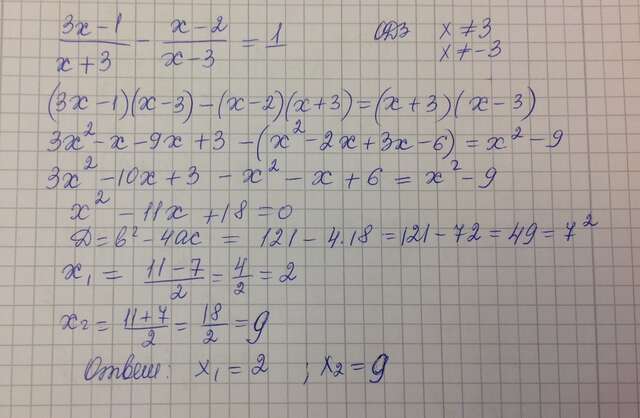 (3x - 1)/(x + 3) - (x - 2)/(x - 3) = 1    ОДЗ x ≠ 3
x ≠ -3
(3x - 1)(x - 3) - (x - 2)(x + 3) = (x + 3)(x - 3)
3x² - x - 9x + 3 - (x² - 2x + 3x - 6) = x² - 9
3x² - 10x + 3 - x² - x + 6 = x² - 9
x² - 11x + 18 = 0
Д = b² - 4ac = 121 - 4·18 = 121 - 72 = 49 = 7²
x₁ = (11 - 7)/2 = 4/2 = 2
x₂ = (11 + 7)/2 = 18/2 = 9
Ответ: x₁ = 2 ; x₂ = 9